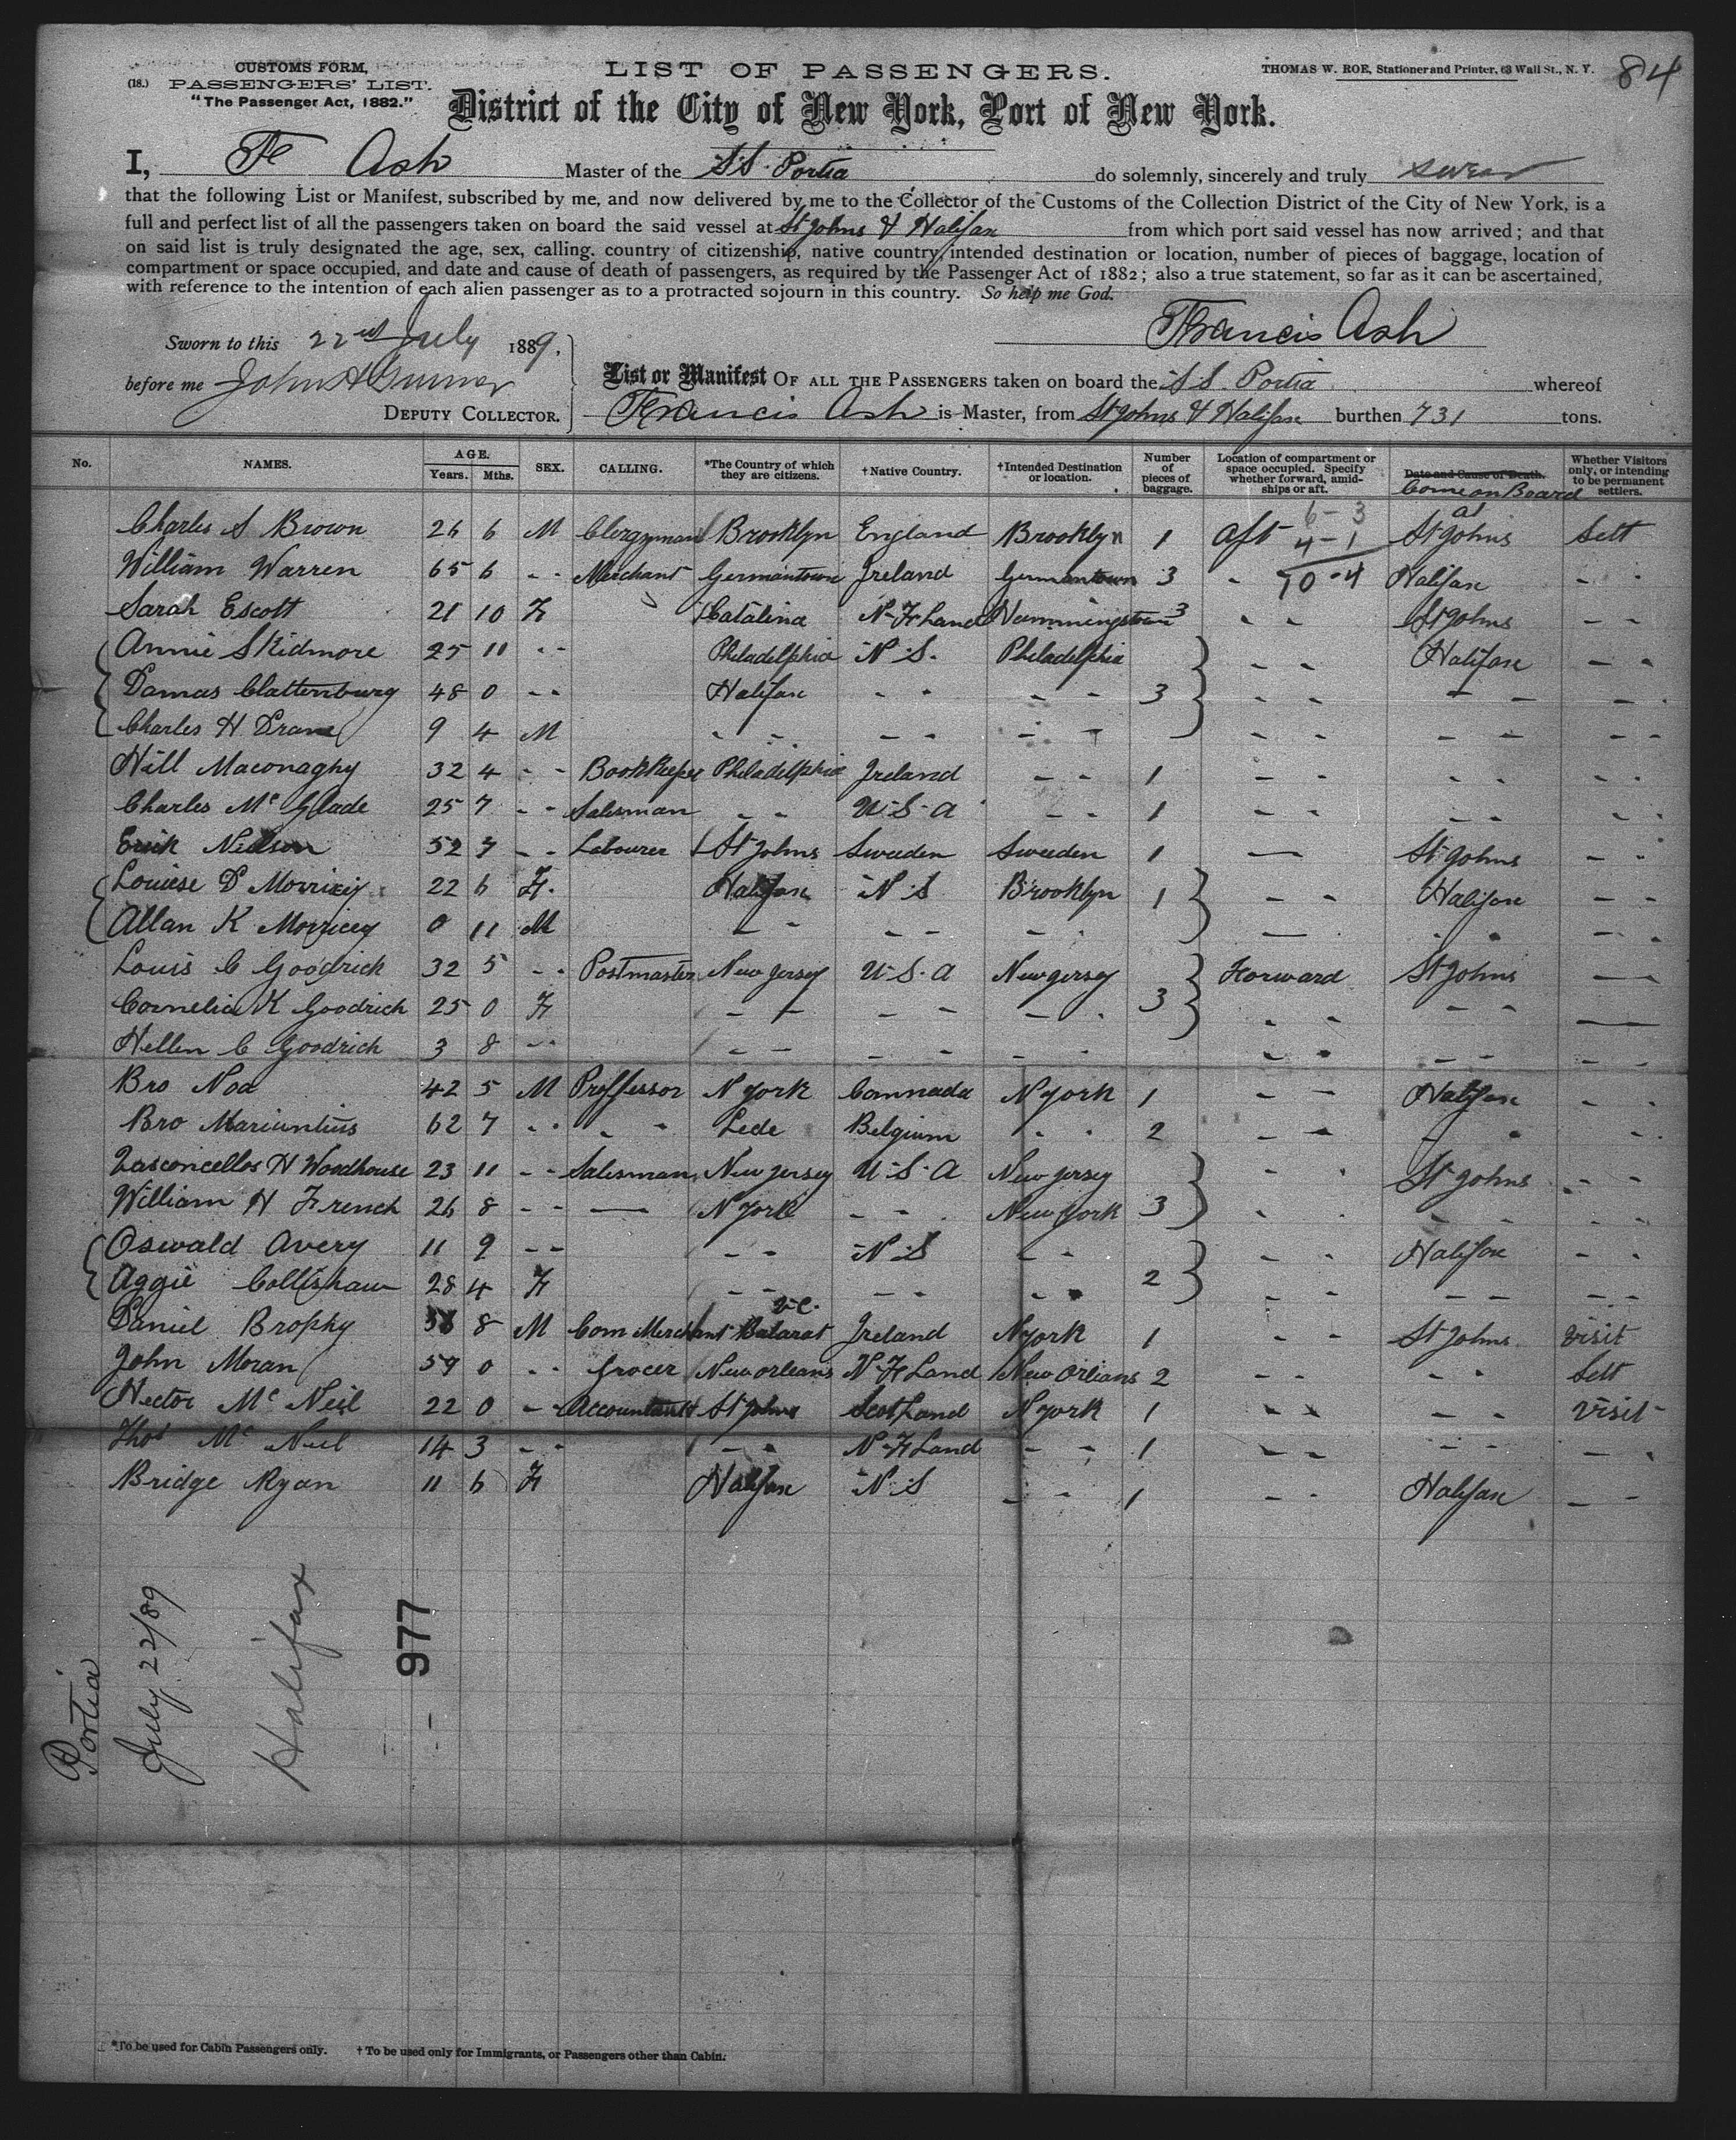 CUSTOMS FORM,
(18.) PASSENGERS' LIST.
"The Passenger Act, 1882."
LIST OF PASSENGERS.
THOMAS W. ROE, Stationer and Printer, 63 Wall St., N. Y.
84
District of the City of New York, Port of New York.
I, Fs Ash Master of the S.S. Portia do solemnly, sincerely and truly swear
that the following List or Manifest, subscribed by me, and now delivered by me to the Collector of the Customs of the Collection District of the City of New York, is a
full and perfect list of all the passengers taken on board the said vessel at St Johns & Halifax from which port said vessel has now arrived; and that
on said list is truly designated the age, sex, calling. country of citizenship, native country, intended destination or location, number of pieces of baggage, location of
compartment or space occupied, and date and cause of death of passengers, as required by the Passenger Act of 1882; also a true statement, so far as it can be ascertained,
with reference to the intention of each alien passenger as to a protracted sojourn in this country. So help me God.
Francis Ash
Sworn to this 22nd July 1889.
before me John H
DEPUTY COLLECTOR.
List or Manifest OF ALL THE PASSENGERS taken on board the S S. Portia whereof
Francis Ash is Master, from St Johns & Halifax burthen 731 tons.
No. NAMES. AGE. Years. Mths. SEX. CALLING. *The Country of which they are citizens. †Native Country. †Intended Destination or location. Number of pieces of baggage. Location of compartment or space occupied. Specify whether forward, amidships or aft. Date and Cause of Death. Come on Board at Whether Visitors only, or intending to be permanent settlers.
6-3
Charles S Brown 26 6 M Clergyman Brooklyn England Brooklyn 1 Aft 4-1 St Johns Sett
William Warren 65 6 - - Merchant Germantown Ireland Germantown 3 - 10-4 Halifax - -
Sarah Escott 21 10 F Catalina N-F Land Hummingstown 3 - - St Johns - -
Annie Skidmore 25 11 - - Philadelphia N S. Philadelphia - - Halifax - -
Damas Clattenburg 48 0 - - Halifax - - - - 3 - - - - - -
Charles H Drane 9 4 M - - - - - - - - - - - -
Hill Maconaghy 32 4 - - Bookkeeper Philadelphia Ireland - - 1 - - - - - -
Charles Mc Glade 25 7 - - Salesman - - U-S-A - - 1 - - - - - -
Erick Neilson 52 7 - - Labourer St Johns Sweeden Sweeden 1 — St Johns - -
Louiese D Morricey 22 6 F. Halifax N S Brooklyn 1 - - Halifax - -
Allan K Morricey 0 11 M - - - - - - — - - - -
Louis C Goodrich 32 5 - - Postmaster New Jersey U-S-A New Jersey Forward St Johns —
Cornelia K Goodrich 25 0 F - - - - - - 3 - - - - —
Hellen C Goodrich 3 8 - - - - - - - - - - - - - -
Bro Noa 42 5 M Proffessor N York Cannada N York 1 - - Halifax - -
Bro Mariantius 62 7 - - - - Lede Belgium - - 2 - - - - - -
Vasconcellos H Woodhouse 23 11 - - Salesman New Jersey U-S-A New Jersey - - St Johns - -
William H French 26 8 - - — N York - - New York 3 - - - - - -
Oswald Avery 11 9 - - - - N S - - - - Halifax - -
Aggie Collishaw 28 4 F - - - - - - 2 - - - - - -
Daniel Brophy 8 M Com Merchant Balarat V-C. Ireland N York 1 - - St Johns Visit
John Moran 59 0 - - Grocer New orleans N-F Land New Orlians 2 - - - - Sett
Hector Mc Neil 22 0 - - Accountant St Johns Scot Land N York 1 - - - - Visit
Thos Mc Neil 14 3 - - - - N-F Land - - 1 - - - - - -
Bridge Ryan 11 6 F Halifax N S - - 1 - - Halifax - -
Portia
July 22/89
Halifax
977
*To be used for Cabin Passengers only. † To be used only for Immigrants, or Passengers other than Cabin.